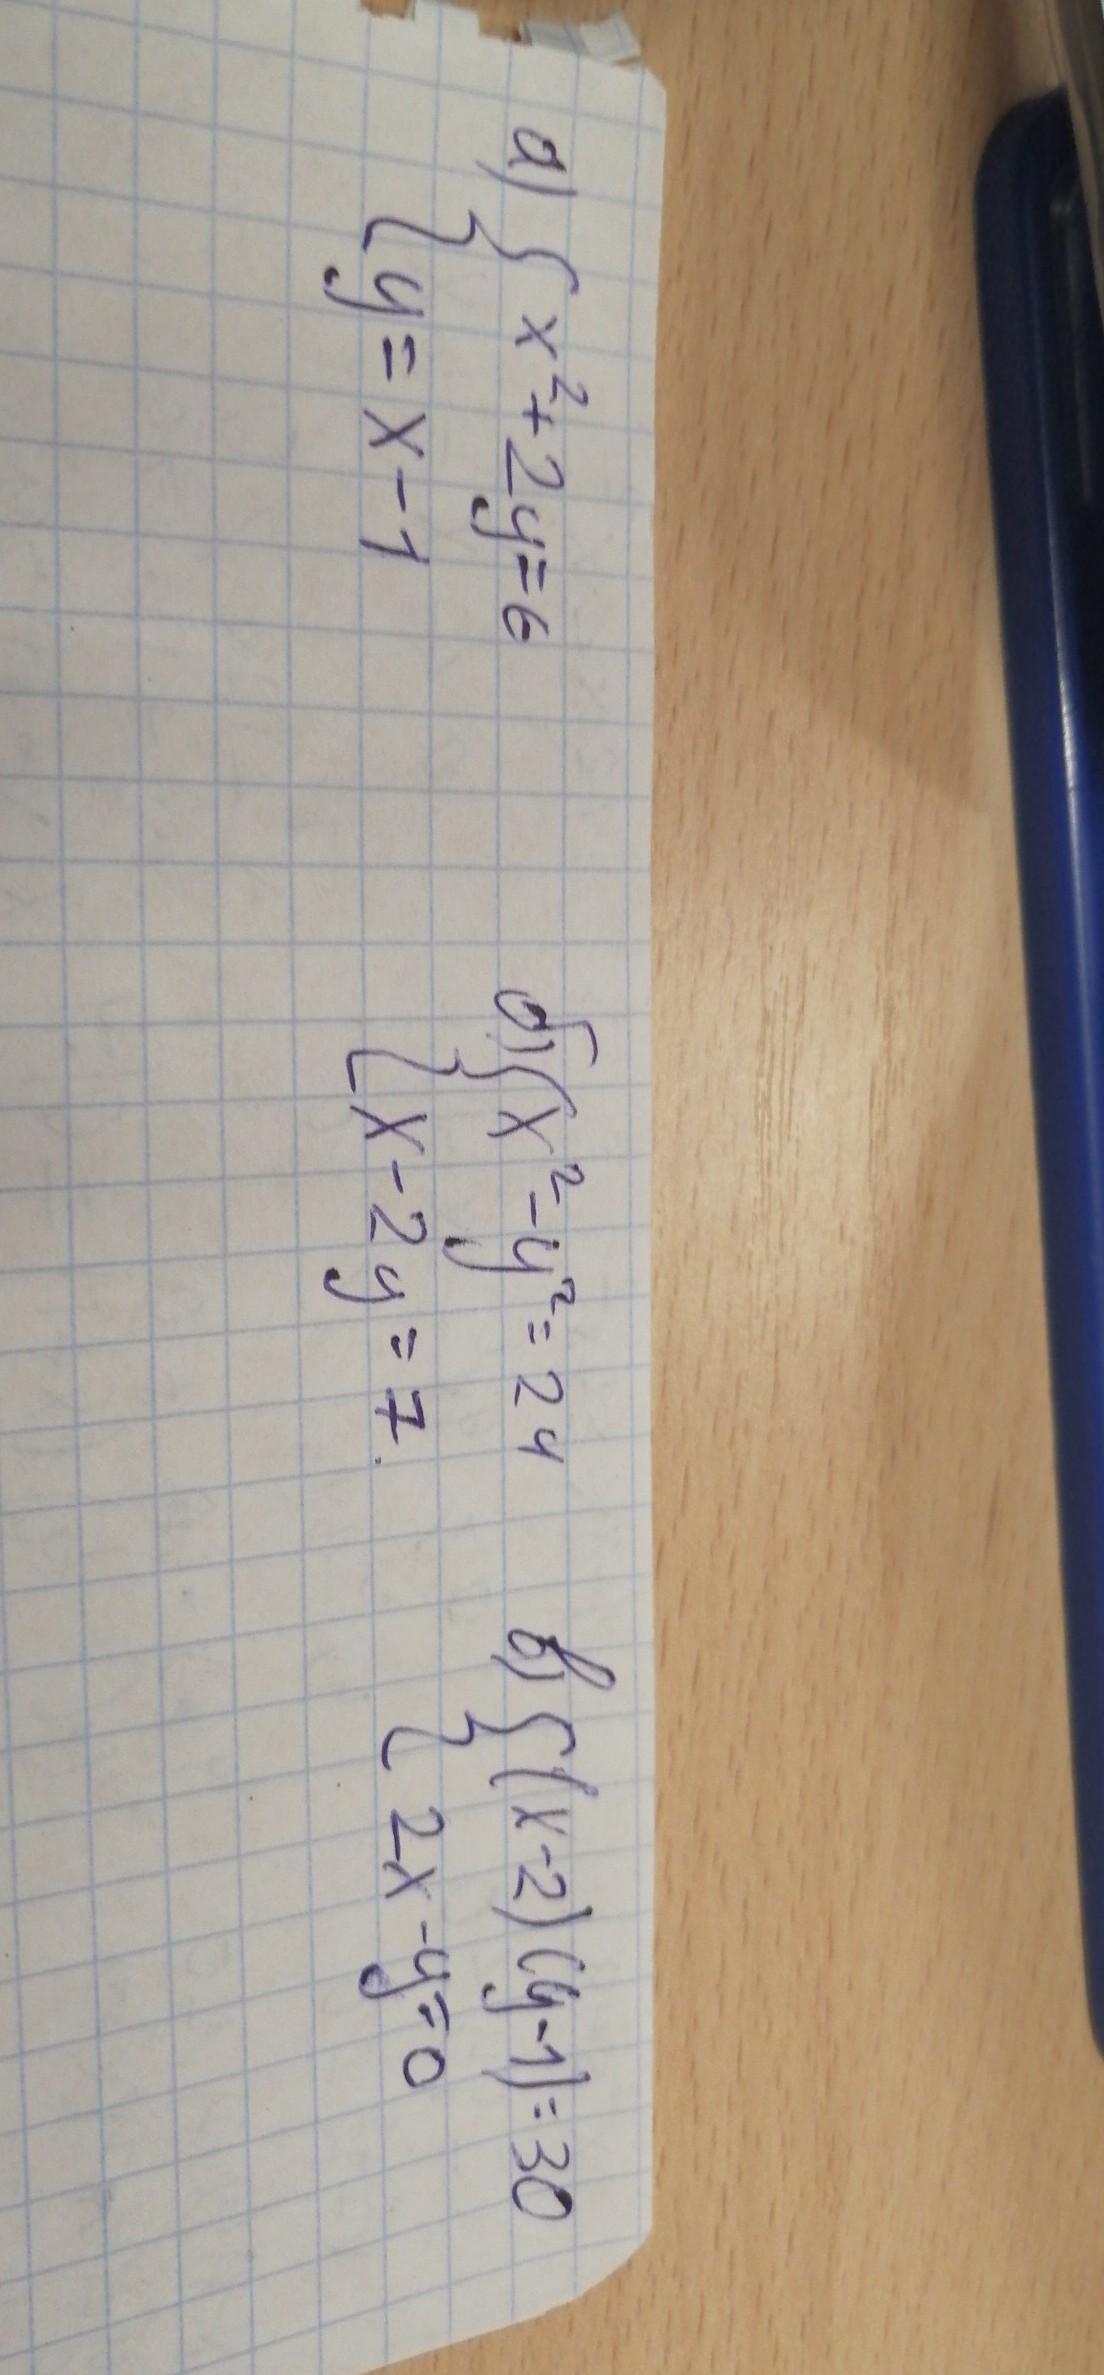 а) { x² + 2y = 6
y = x - 1
б) { x² - y² = 24
x - 2y = 7.
в) { (x - 2)(y - 1) = 30
2x - y = 0